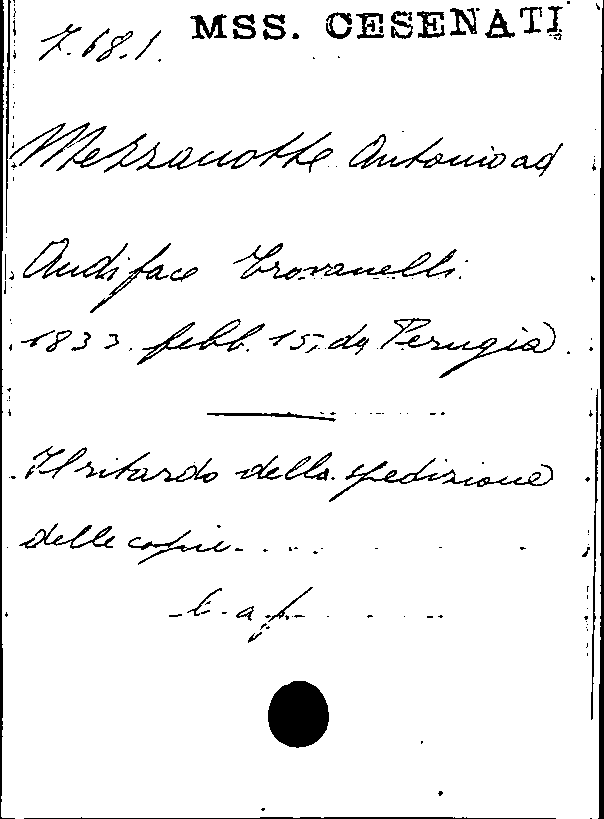 7.68.1. MSS. CESENATI
Mezzanotte Antonio ad
Audiface Trovanelli.
1833. febb. 15, da Perugia.
Il ritardo della spedizione
delle copie....
l. a. f.